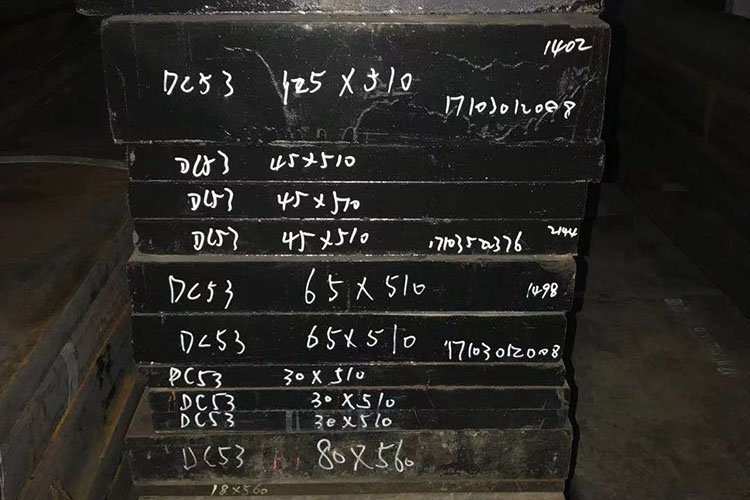 1402
DC53 125X510
17103012008
DC53 45X510
DC53 45X510
DC53 45X510 1710350376 2144
DC53 65X510 1498
DC53 65X510 17103012008
DC53 30X510
DC53 30X510
DC53 30X510
DC53 80X560
18X560